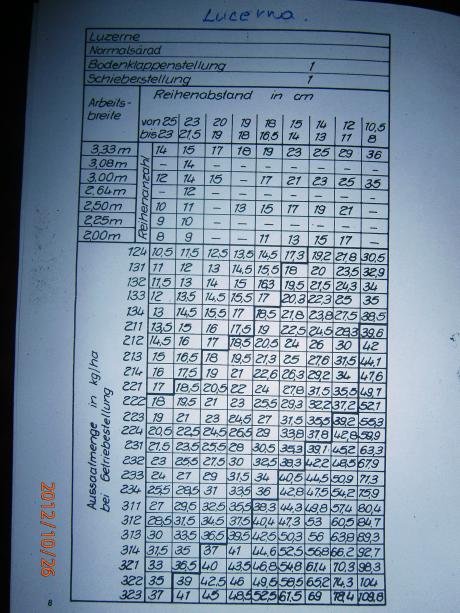 Lucerna.
Luzerne
Normalsärad
Bodenklappenstellung 1
Schieberstellung 1
Arbeits-breite Reihenabstand in cm
von 25 23 20 19 18 15 14 12 10,5
bis 23 21,5 19 18 16,5 14 13 11 8
Reihenanzahl
3,33m 14 15 17 18 19 23 25 29 36
3,08m — 14 — — — — — — —
3,00m 12 14 15 — 17 21 23 25 35
2,64m — 12 — — — — — — —
2,50m 10 11 — 13 15 17 19 21 —
2,25m 9 10 — — — — — — —
2,00m 8 9 — — 11 13 15 17 —
Aussaatmenge in kg/ha bei Getriebestellung
124 10,5 11,5 12,5 13,5 14,5 17,3 19,2 21,8 30,5
131 11 12 13 14,5 15,5 18 20 23,5 32,9
132 11,5 13 14 15 16,3 19,5 21,5 24,3 34
133 12 13,5 14,5 15,5 17 20,3 22,3 25 35
134 13 14,5 15,5 17 18,5 21,8 23,8 27,5 38,5
211 13,5 15 16 17,5 19 22,5 24,5 28,3 39,6
212 14,5 16 17 18,5 20,5 24 26 30 42
213 15 16,5 18 19,5 21,3 25 27,6 31,5 44,1
214 16 17,5 19 21 22,6 26,3 29,2 34 47,6
221 17 18,5 20,5 22 24 27,8 31,5 35,5 49,7
222 18 19,5 21 23 25,5 29,3 32,2 37,2 52,1
223 19 21 23 24,5 27 31,5 35,5 39,2 55,3
224 20,5 22,5 24,5 26,5 29 33,8 37,8 42,8 59,9
231 21,5 23,5 25,5 28 30,5 35,3 39,1 45,2 63,3
232 23 25,5 27,5 30 32,5 38,3 42,2 48,5 67,9
233 24 27 29 31,5 34 40,5 44,5 50,9 71,3
234 25,5 28,5 31 33,5 36 42,8 47,5 54,2 75,9
311 27 29,5 32,5 35,5 38,3 44,3 49,8 57,4 80,4
312 28,5 31,5 34,5 37,5 40,4 47,3 53 60,5 84,7
313 30 33,5 36,5 39,5 42,5 50,3 56 63,8 89,3
314 31,5 35 37 41 44,6 52,5 56,8 66,2 92,7
321 33 36,5 40 43,5 46,8 54,8 61,4 70,3 98,3
322 35 39 42,5 46 49,5 58,5 65,2 74,3 104
323 37 41 45 48,5 52,5 61,5 69 78,4 109,8
8
2012/10/26